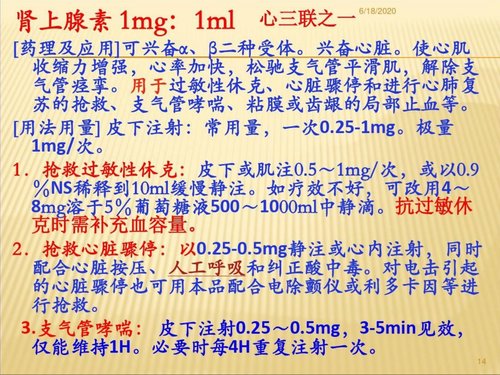 肾上腺素 1mg：1ml   心三联之一
6/18/2020
[药理及应用]可兴奋α、β二种受体。兴奋心脏。使心肌
收缩力增强，心率加快，松驰支气管平滑肌，解除支
气管痉挛。用于过敏性休克、心脏骤停和进行心肺复
苏的抢救、支气管哮喘、粘膜或齿龈的局部止血等。
[用法用量] 皮下注射：常用量，一次0.25-1mg。极量
1mg/次。
1．抢救过敏性休克：皮下或肌注0.5～1mg/次，或以0.9
％NS稀释到10ml缓慢静注。如疗效不好，可改用4～
8mg溶于5％葡萄糖液500～1000ml中静滴。抗过敏休
克时需补充血容量。
2．抢救心脏骤停：以0.25-0.5mg静注或心内注射，同时
配合心脏按压、人工呼吸和纠正酸中毒。对电击引起
的心脏骤停也可用本品配合电除颤仪或利多卡因等进
行抢救。
3.支气管哮喘：皮下注射0.25～0.5mg，3-5min见效，
仅能维持1H。必要时每4H重复注射一次。
14